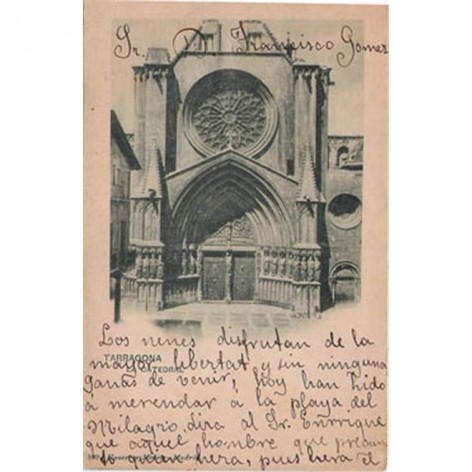 Sr. Dn. Francisco Gomez
Los nenes disfrutan de la
TARRAGONA
mayor libertat y sin ninguna
CATEDRAL
ganas de venir, hoy han hido
á merendar á la playa del
Milagro, dira al Sr. Enrrique
que aquel hombre que
quien hera, pues hera el